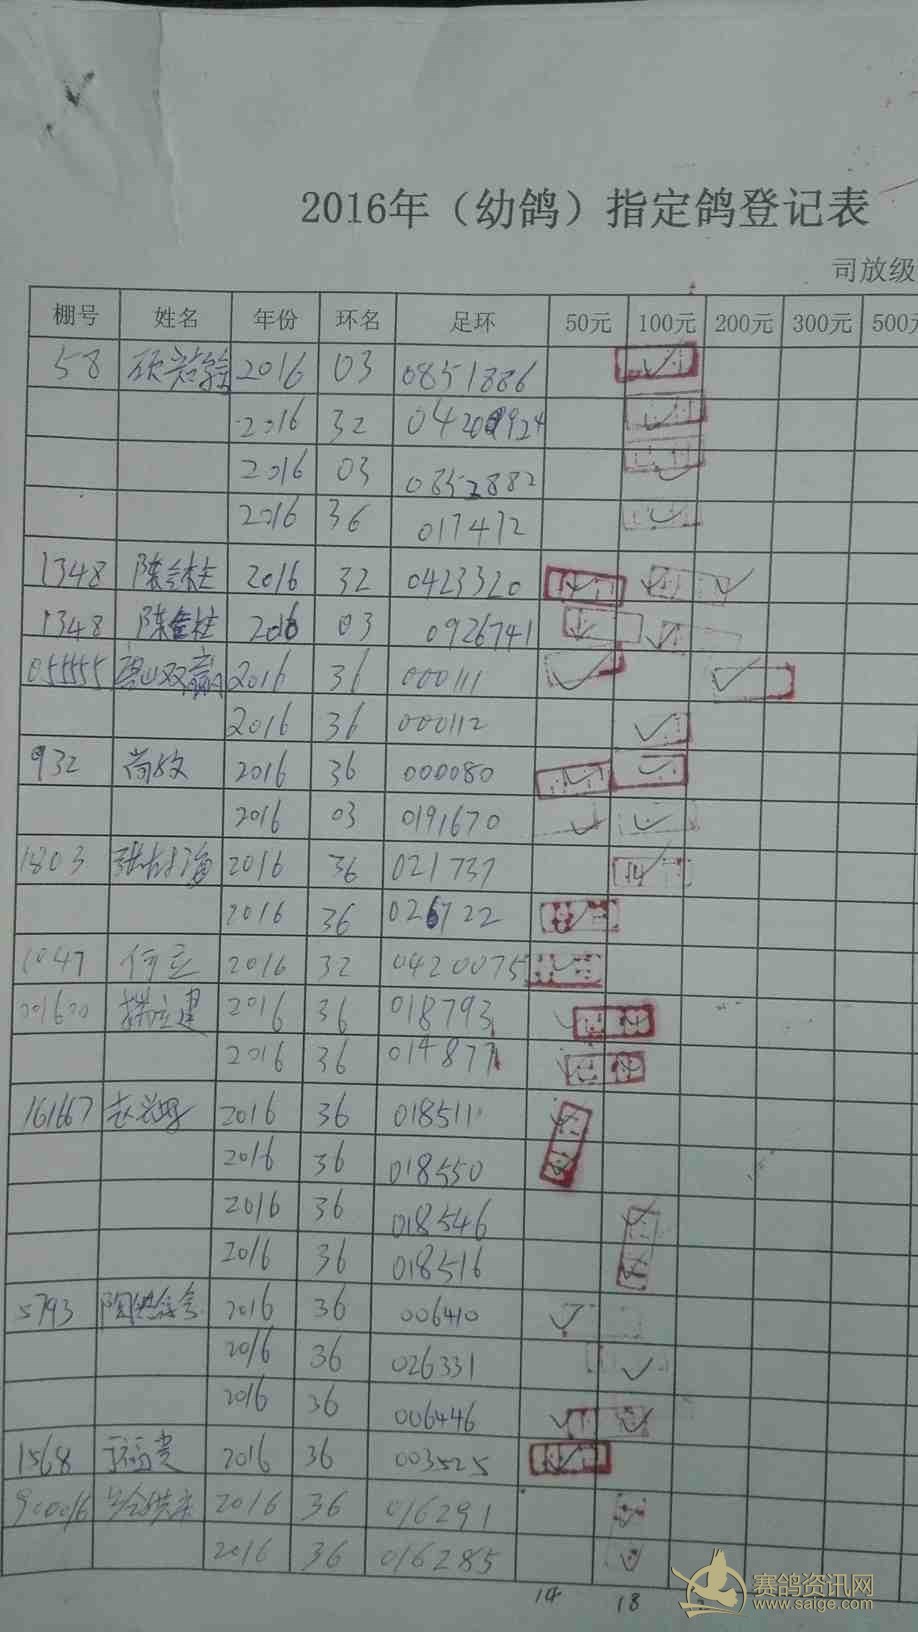 2016年（幼鸽）指定鸽登记表
司放级
棚号 姓名 年份 环名 足环 50元 100元 200元 300元 500元
58 2016 03 0851886
2016 32
2016 03 0852882
2016 36 017472
1348 2016 32 0423320
1348 陈金柱 2016 03 0926741
055555 唐山双赢 2016 36 000111
2016 36 000112
932 尚攻 2016 36 000080
2016 03 0191670
1803 2016 36 021737
2016 36 026722
1047 何立 2016 32 0420075
001600 2016 36 018793
2016 36 014877
161667 2016 36 018511
2016 36 018550
2016 36 018546
2016 36 018516
5793 2016 36 006410
2016 36 026331
2016 36 006446
1568 2016 36 003525
900016 2016 36 016291
2016 36 016285
14 18
赛鸽资讯网
www.saige.com